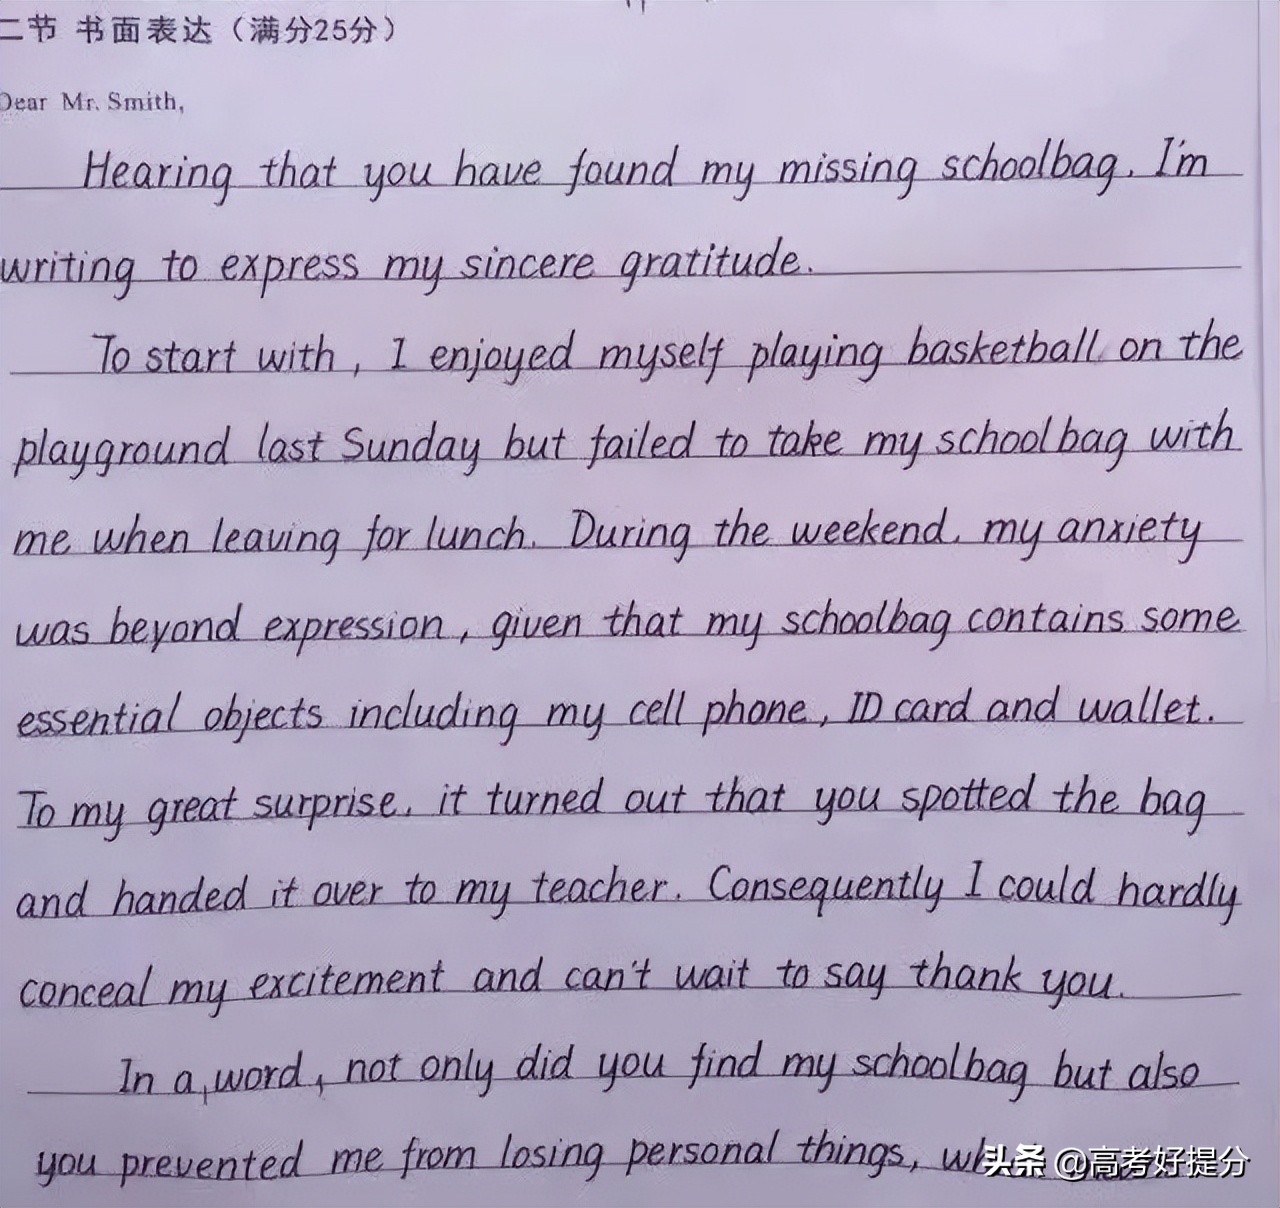 二节 书面表达（满分25分）
Dear Mr. Smith,
Hearing that you have found my missing schoolbag, I'm
writing to express my sincere gratitude.
To start with, I enjoyed myself playing basketball on the
playground last Sunday but failed to take my schoolbag with
me when leaving for lunch. During the weekend, my anxiety
was beyond expression, given that my schoolbag contains some
essential objects including my cell phone, ID card and wallet.
To my great surprise, it turned out that you spotted the bag
and handed it over to my teacher. Consequently I could hardly
conceal my excitement and can't wait to say thank you.
In a word, not only did you find my schoolbag but also
you prevented me from losing personal things,
头条 @高考好提分